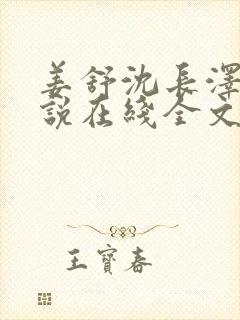 姜舒沈長澤
說在綫全文
王寶春